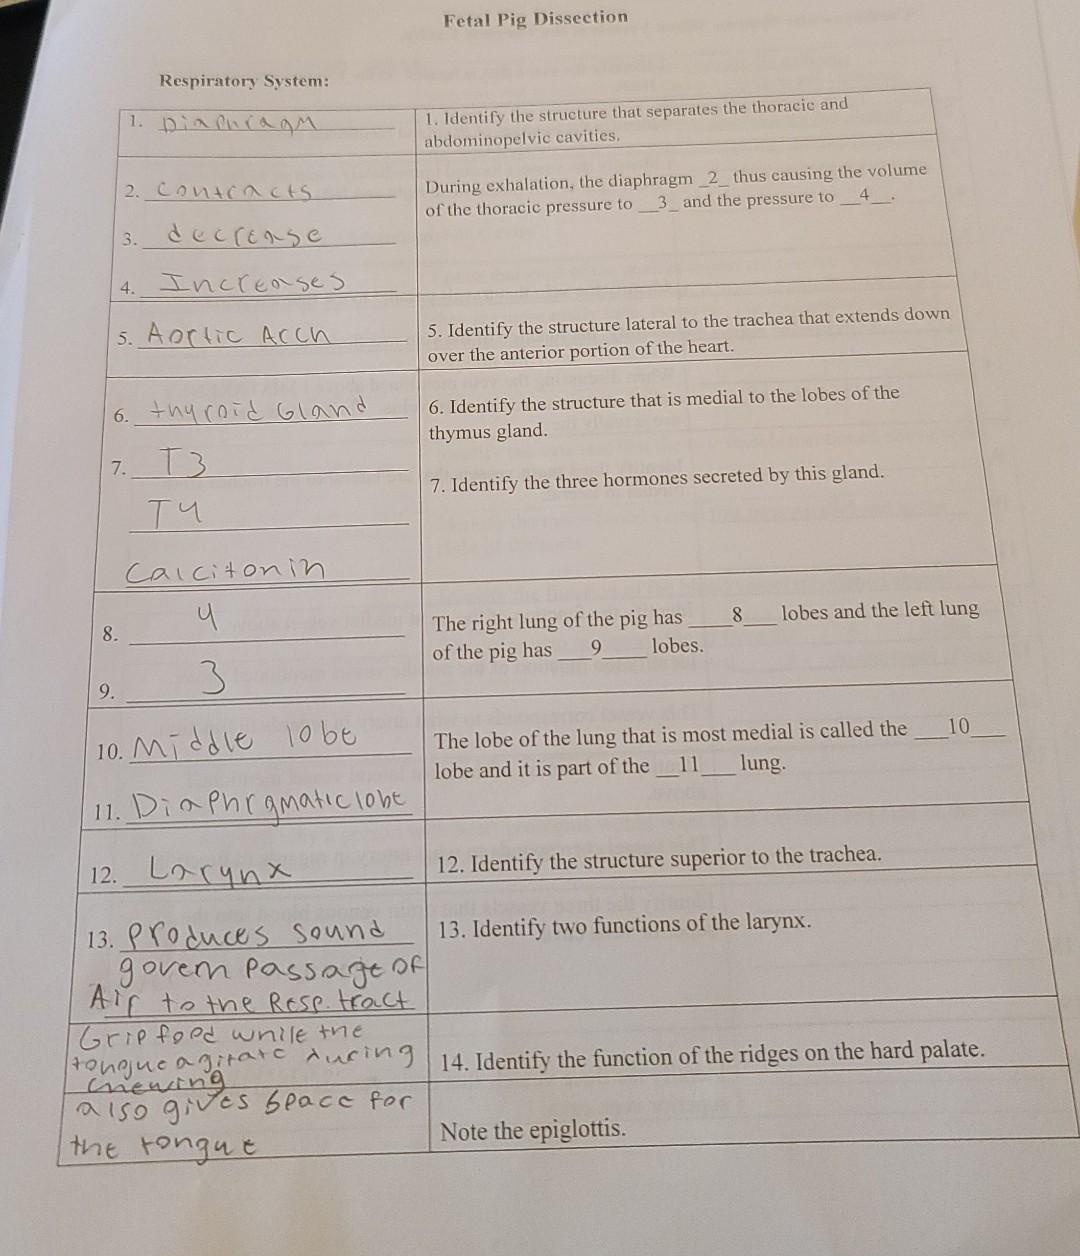 Fetal Pig Dissection
Respiratory System:
1. Diaphragm
1. Identify the structure that separates the thoracic and
abdominopelvic cavities.
2. contracts
3. decrease
4. Increases
During exhalation, the diaphragm _2_ thus causing the volume
of the thoracic pressure to __3_ and the pressure to __4__.
5. Aortic Arch
5. Identify the structure lateral to the trachea that extends down
over the anterior portion of the heart.
6. thyroid Gland
6. Identify the structure that is medial to the lobes of the
thymus gland.
7. T3
T4
Calcitonin
7. Identify the three hormones secreted by this gland.
8. 4
9. 3
The right lung of the pig has ____8___ lobes and the left lung
of the pig has ___9____ lobes.
10. Middle lobe
11. Diaphrgmatic lobe
The lobe of the lung that is most medial is called the ___10___
lobe and it is part of the __11___ lung.
12. Larynx
12. Identify the structure superior to the trachea.
13. Produces sound
govern Passage of
Air to the Resp. tract
13. Identify two functions of the larynx.
Grip food while the
tongue agitate during
chewing
also gives space for
the tongue
14. Identify the function of the ridges on the hard palate.
Note the epiglottis.